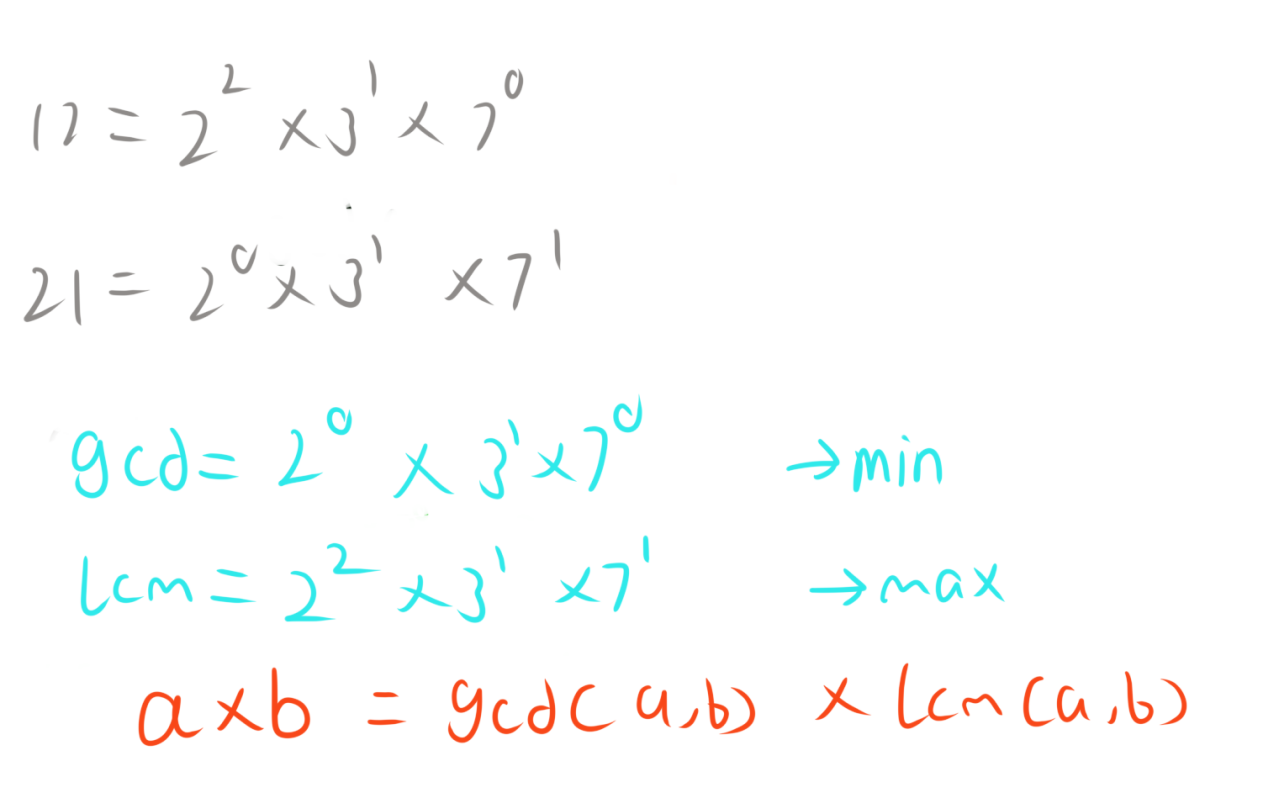 12 = 2² × 3¹ × 7⁰
21 = 2⁰ × 3¹ × 7¹
gcd = 2⁰ × 3¹ × 7⁰ → min
lcm = 2² × 3¹ × 7¹ → max
a × b = gcd(a,b) × lcm(a,b)